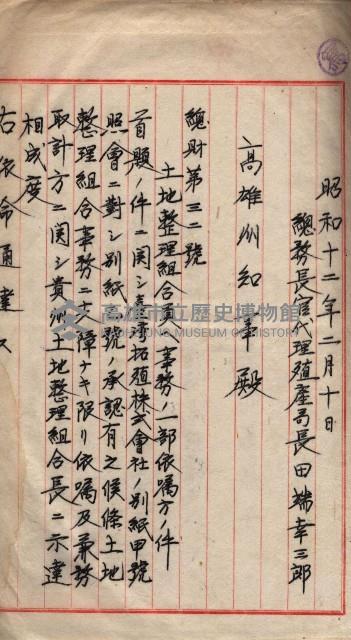 昭和十二年二月十日
總務長官代理殖產局長田端幸三郎
高雄州知事殿
總財第三二號
土地整理組合 事務ノ一部依囑方ノ件
首題ノ件ニ関シ臺灣拓殖株式會社ノ別紙甲號
照會ニ對シ別紙 號ノ承認有之候條土地
整理組合事務ニ支障ナキ限リ依囑及兼務
取計方ニ関シ貴州土地整理組合長ニ示達
相成度
右依命通達ス
高雄市立歷史博物館
KAOHSIUNG MUSEUM OF HISTORY